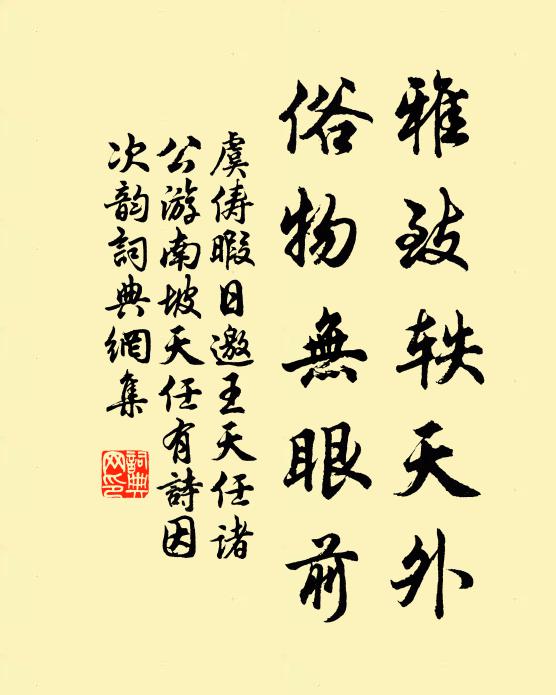 雅致轶天外
俗物無眼前
虞俦暇日邀王天任諸
公游南坡天任有詩因
次韵詞典網集
詞典
网印